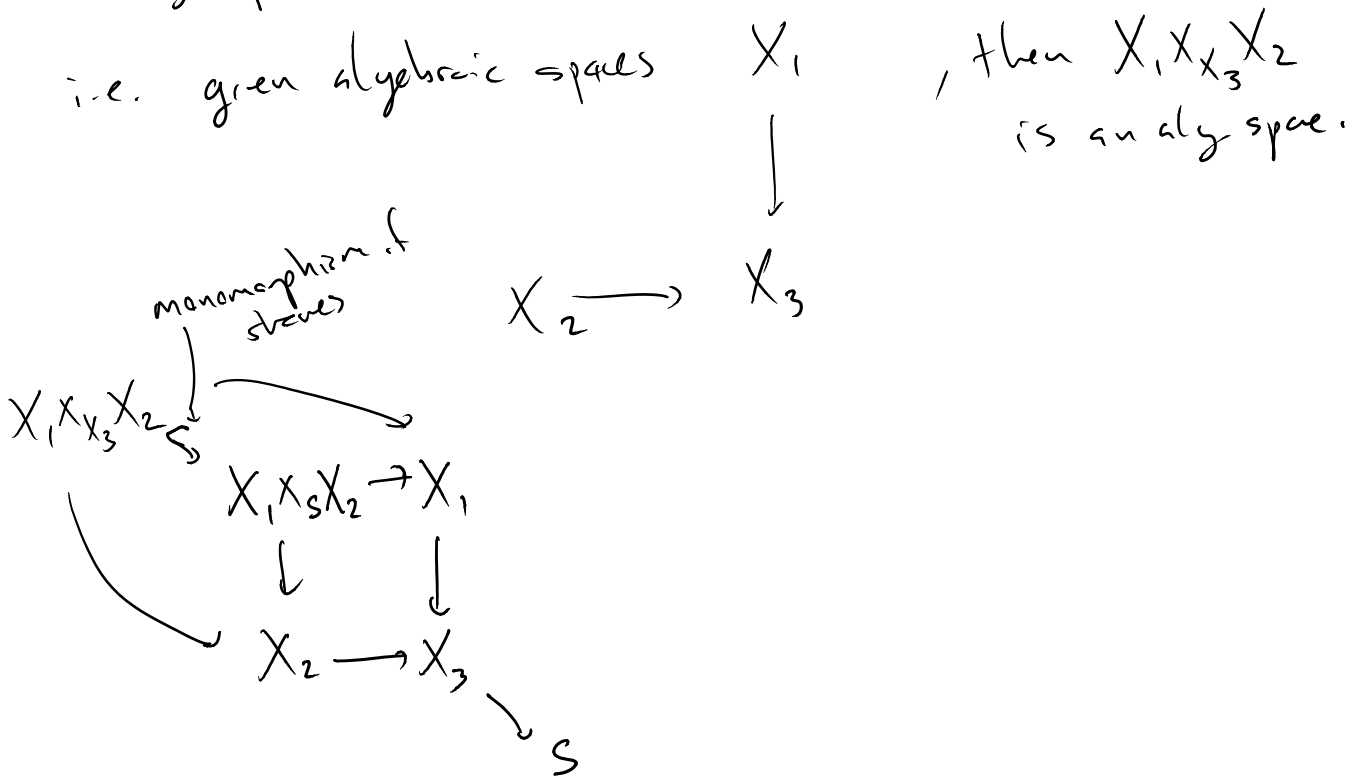 i.e. given algebraic spaces X₁ , then X₁×_{X₃}X₂
is an alg space.
X₂ → X₃
monomorphism of
sheaves
X₁×_{X₃}X₂
X₁×_SX₂ → X₁
X₂ → X₃
S